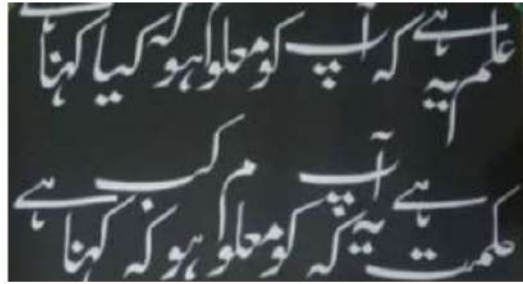 علم یہ ہے کہ آپ کو معلوم ہو کہ کیا کہنا ہے
حکمت یہ ہے کہ آپ کو معلوم ہو کہ کب کہنا ہے